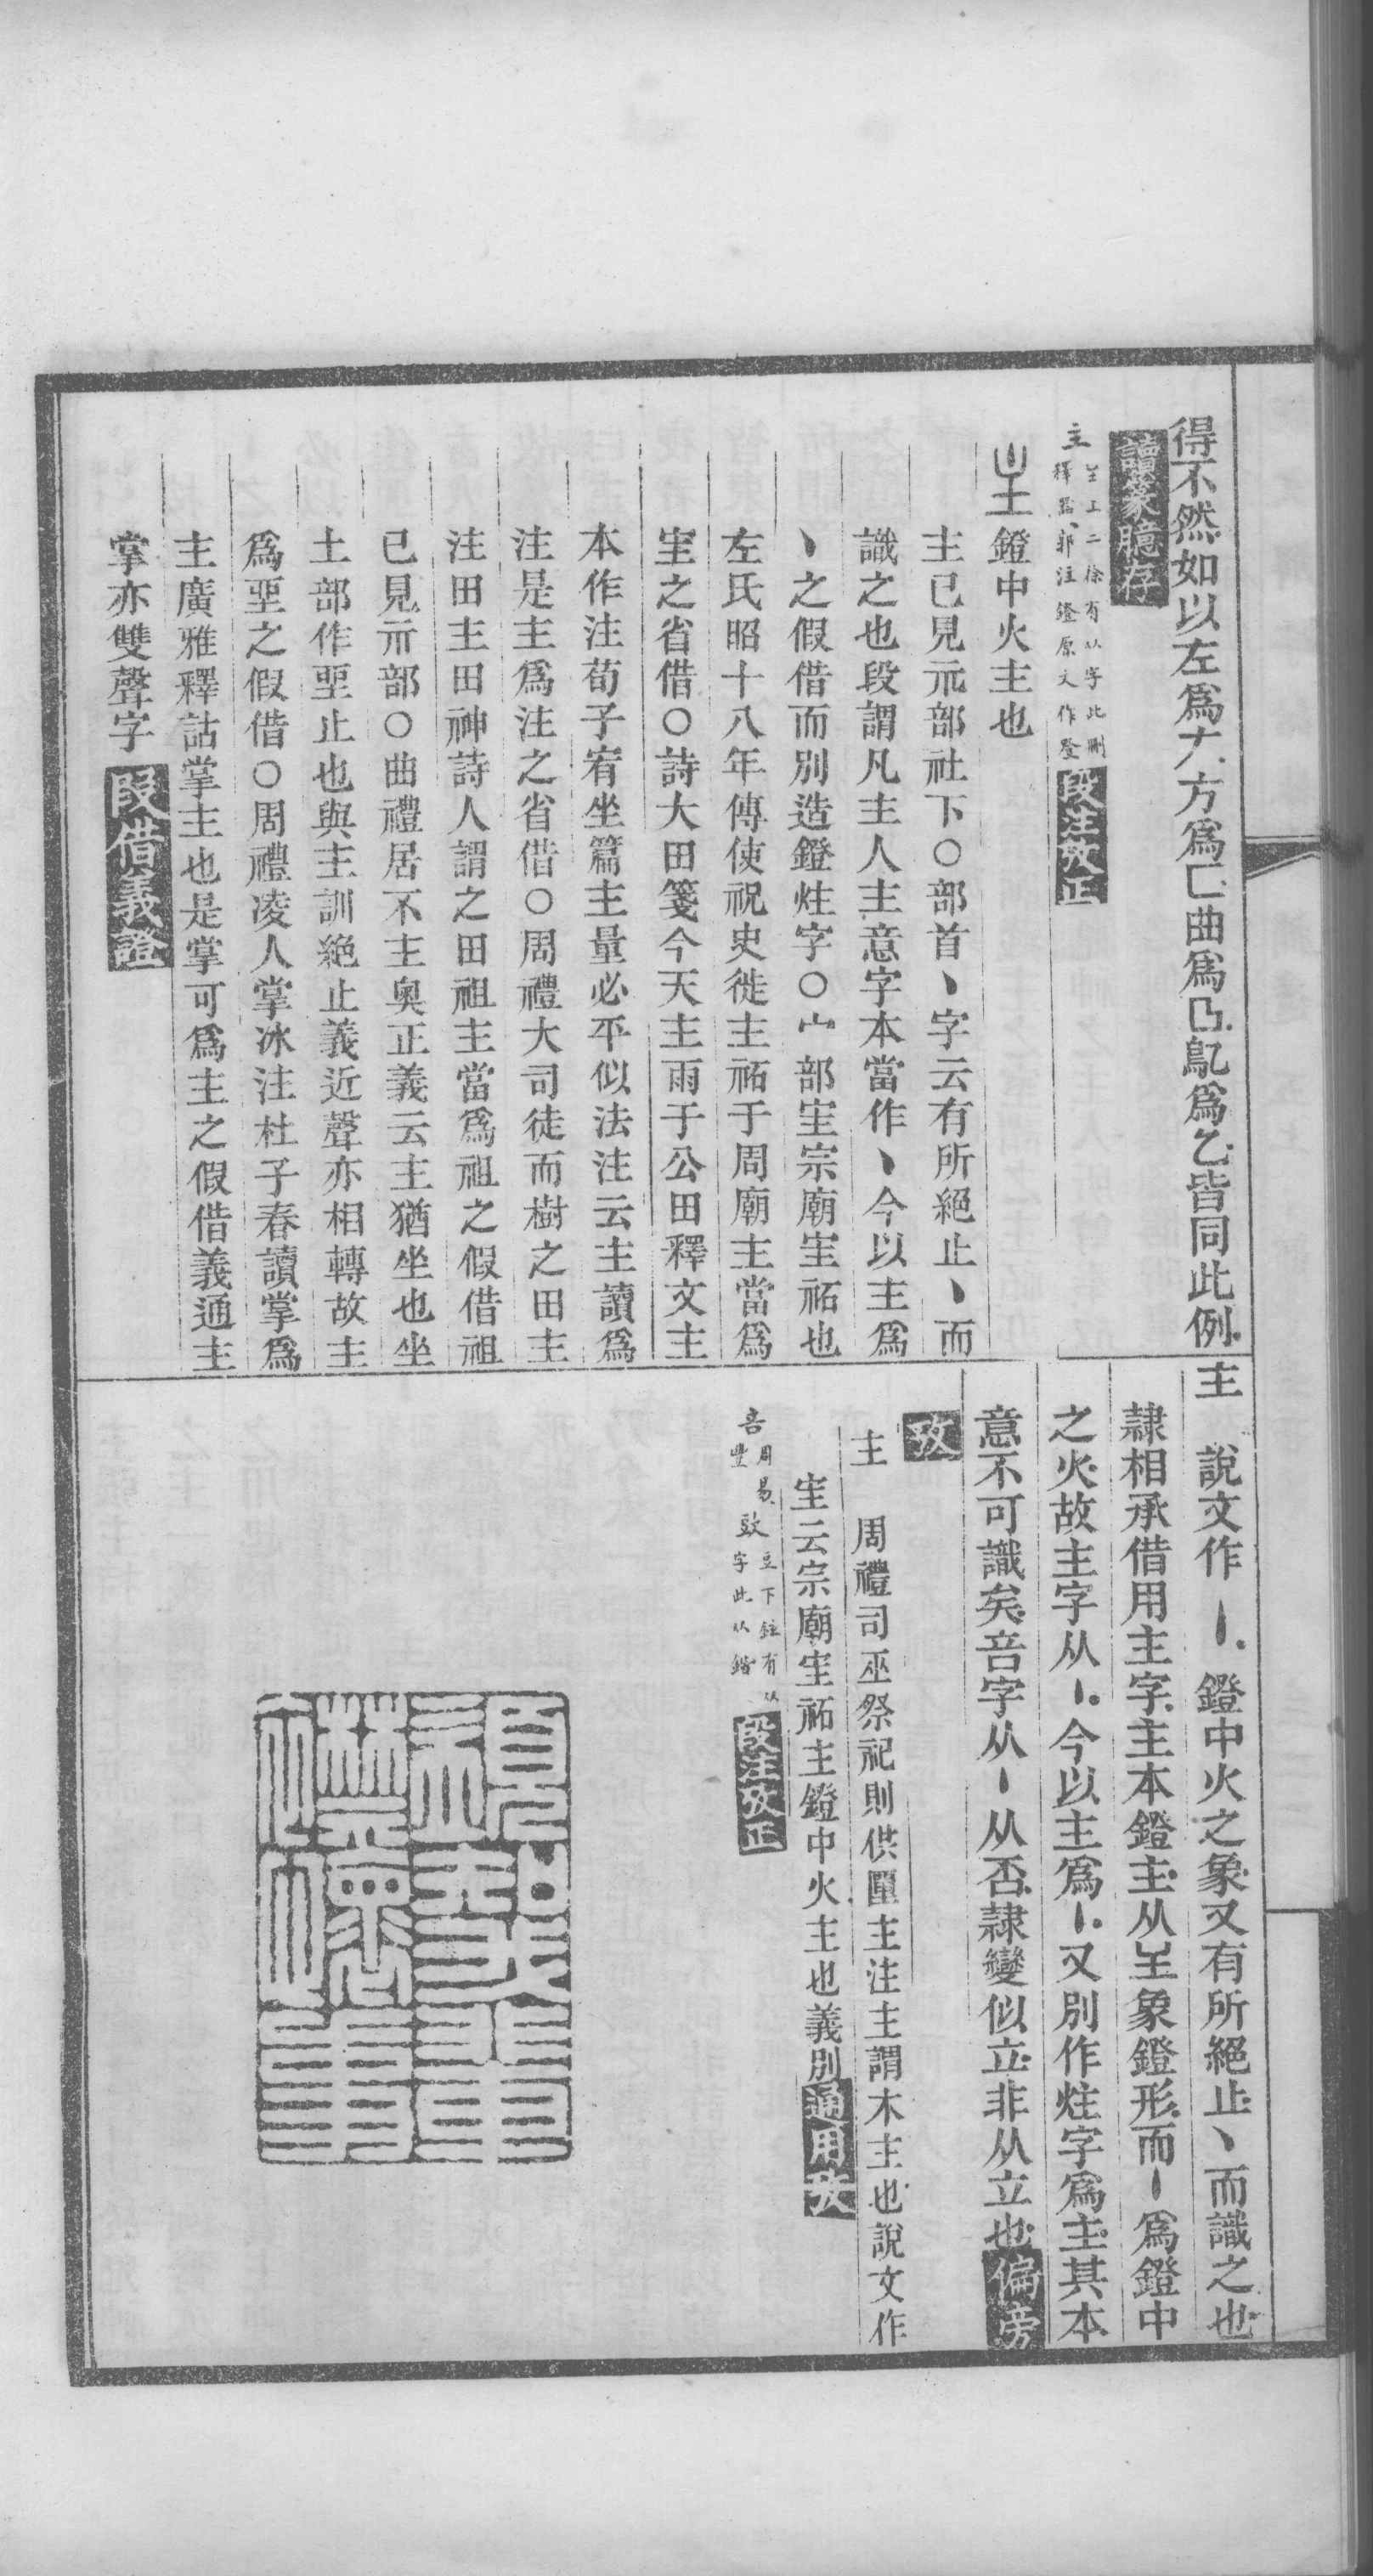 得不然如以左爲𠂇方爲匚曲爲𠙹鳦爲乞皆同此例
讀篆臆存
主
㞷上二徐有以字此刪
釋器郭注鐙原文作登
段注攷正
鐙中火主也
主已見元部社下○部首丶字云有所絕止丶而
識之也段謂凡主人主意字本當作丶今以主爲
丶之假借而別造鐙炷字○宀部宔宗廟宔祏也
左氏昭十八年傳使祝史徙主祏于周廟主當爲
宔之省借○詩大田箋今天主雨于公田釋文主
本作注荀子宥坐篇主量必平似法注云主讀爲
注是主爲注之省借○周禮大司徒而樹之田主
注田主田神詩人謂之田祖主當爲祖之假借祖
已見示部○曲禮居不主奧正義云主猶坐也坐
土部作聖止也與主訓絕止義近聲亦相轉故主
爲聖之假借○周禮凌人掌冰注杜子春讀掌爲
主廣雅釋詁掌主也是掌可爲主之假借義通主
掌亦雙聲字
叚借義證
主 說文作丨鐙中火之象又有所絕止丶而識之也
隷相承借用主字主本鐙主从㞷象鐙形而丨爲鐙中
之火故主字从丨今以主爲丨又別作炷字爲主其本
意不可識矣音字从丨从否隷變似立非从立也偏旁
攷
主 周禮司巫祭祀則供匰主注主謂木主也說文作
宔云宗廟宔祏主鐙中火主也義別通用攷
音
周易
豐
豆下註有以
字此以鍇
段注攷正